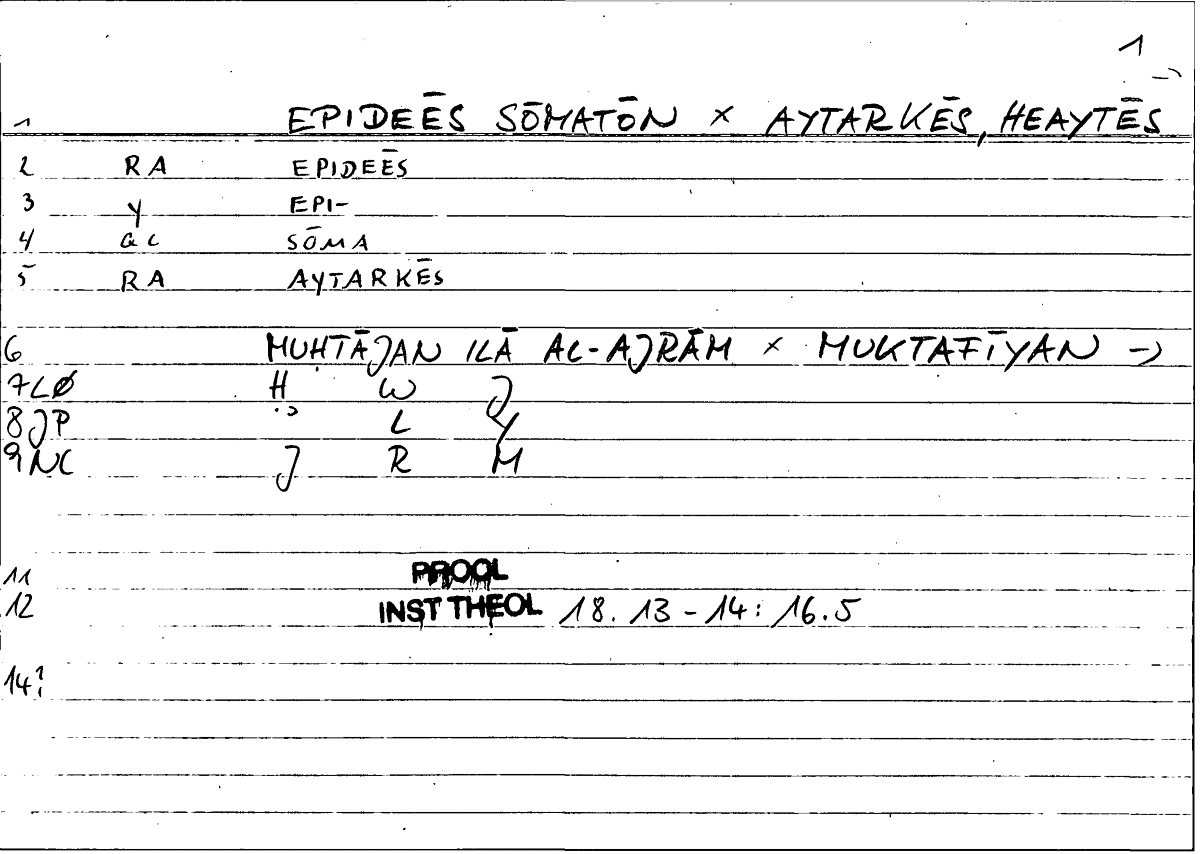 1 →
1 EPIDEĒS SŌMATŌN × AYTARKĒS, HEAYTĒS
2 RA EPIDEĒS
3 Y EPI-
4 GC SŌMA
5 RA AYTARKĒS
6 MUḤTĀJAN ILĀ AL-AJRĀM × MUKTAFĪYAN →
7 LØ Ḥ W J
8 JP ʾ L Y
9 NC J R M
11 PROCL
12 INST THEOL 18. 13 - 14 : 16.5
14?